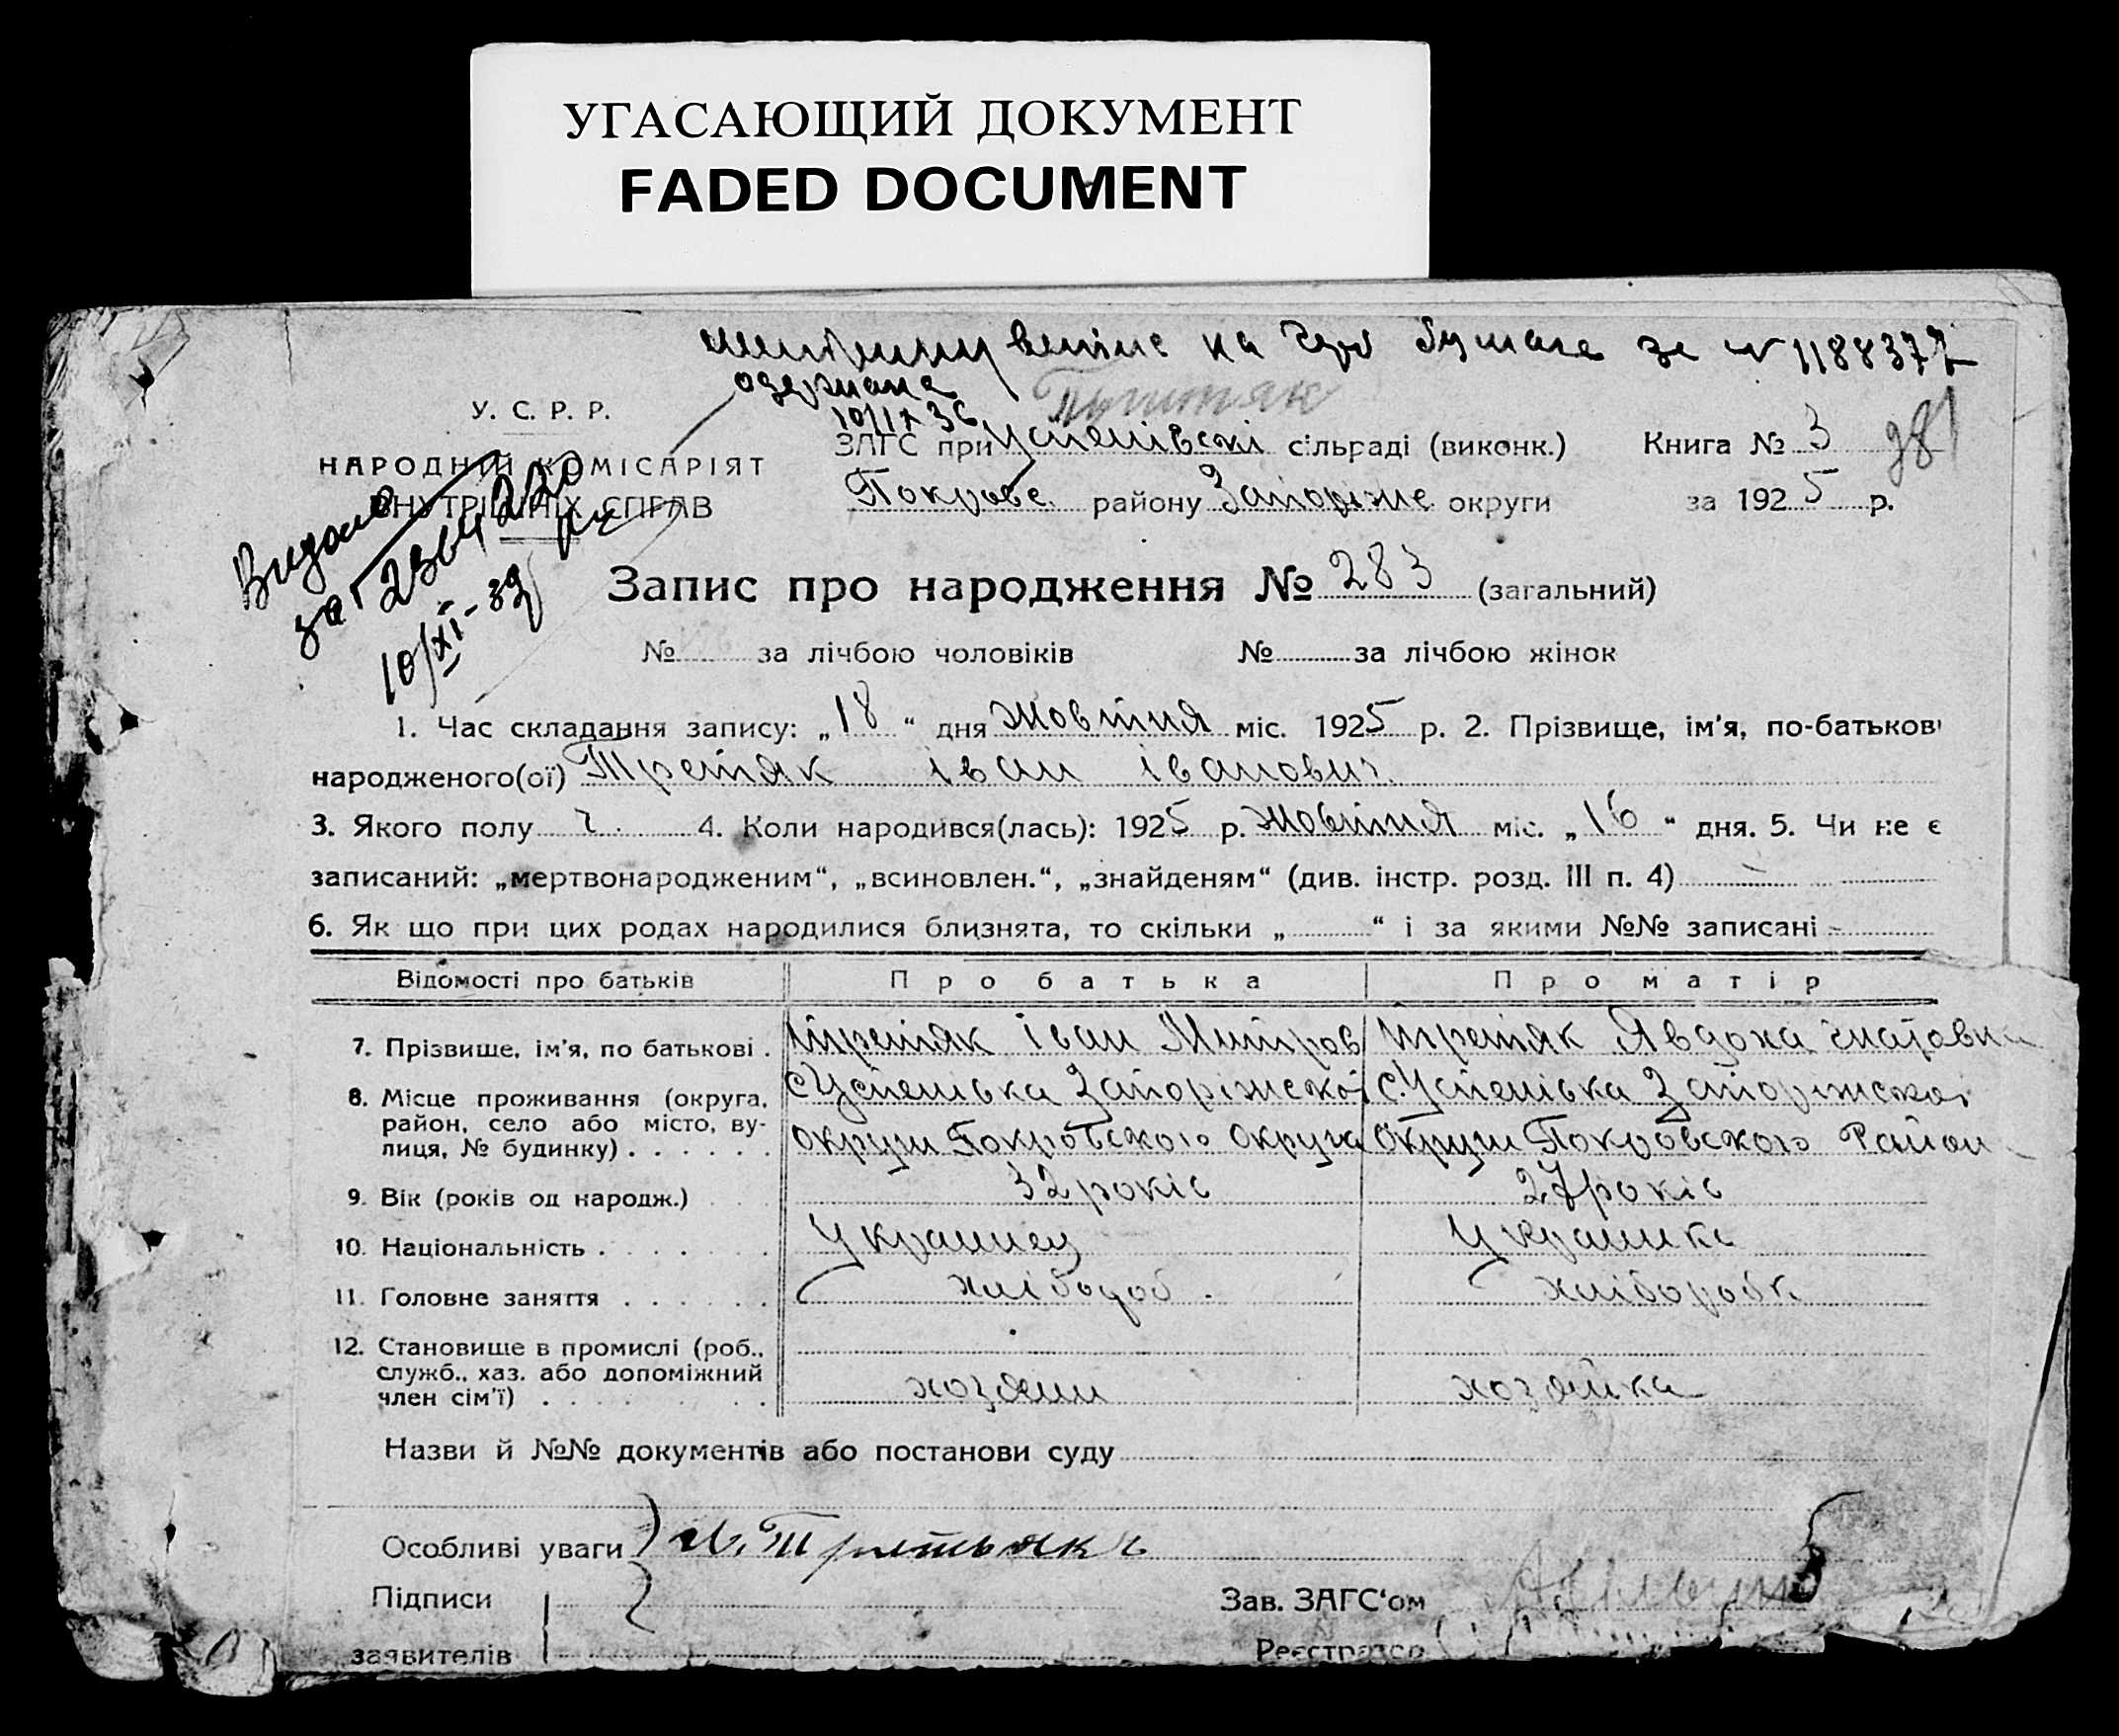 УГАСАЮЩИЙ ДОКУМЕНТ
FADED DOCUMENT
на герб бумаге за № 1188377
одержана
У. С. Р. Р.
НАРОДНІЙ КОМІСАРІЯТ
ВНУТРІШНІХ СПРАВ
Видано
за № 2364220
10/XI-39
ЗАГС при Успенівскі сільраді (виконк.)
Покровс. району Запоріжс округи
Книга № 3
за 1925 р.
Запис про народження № 283 (загальний)
№ за лічбою чоловіків № за лічбою жінок
1. Час складання запису: „18“ дня Жовтня міс. 1925 р. 2. Прізвище, ім'я, по-батькові
народженого(ої) Третяк іван іванович
3. Якого полу ч. 4. Коли народився(лась): 1925 р. Жовтня міс. „16“ дня. 5. Чи не є
записаний: „мертвонародженим“, „всиновлен.“, „знайденям“ (див. інстр. розд. III п. 4)
6. Як що при цих родах народилися близнята, то скільки „ “ і за якими №№ записані -
Відомості про батьків Про батька Про матір
7. Прізвище, ім'я, по батькові . Третяк Іван Митров Третяк Явдоха
8. Місце проживання (округа, с Успенівка Запоріжскої с. Успенівка Запоріжскої
район, село або місто, ву-
лиця, № будинку) . . . . . . округи Покровского Округи округи Покровского Район
9. Вік (років од народж.) 32 років 27 років
10. Національність . . . . . . . Украинец Украинка
11. Головне заняття . . . . . . хлібороб. хліборобк.
12. Становище в промислі (роб.,
служб., хаз. або допоміжний
член сім'ї) . . . . . . . хозяин хозяйка
Назви й №№ документів або постанови суду
Особливі уваги И. Третьякъ
Підписи
заявителів
Зав. ЗАГС'ом
Реєстратор